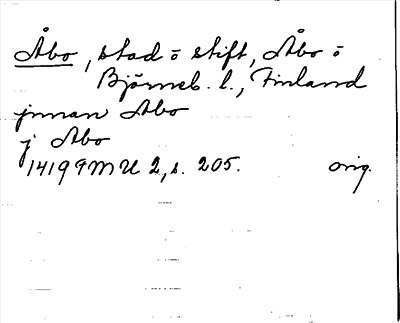 Åbo, stad o stift, Åbo o
Björneb. l., Finland
jnnan Abo
j Abo
1419 9 MU 2, s. 205. orig.